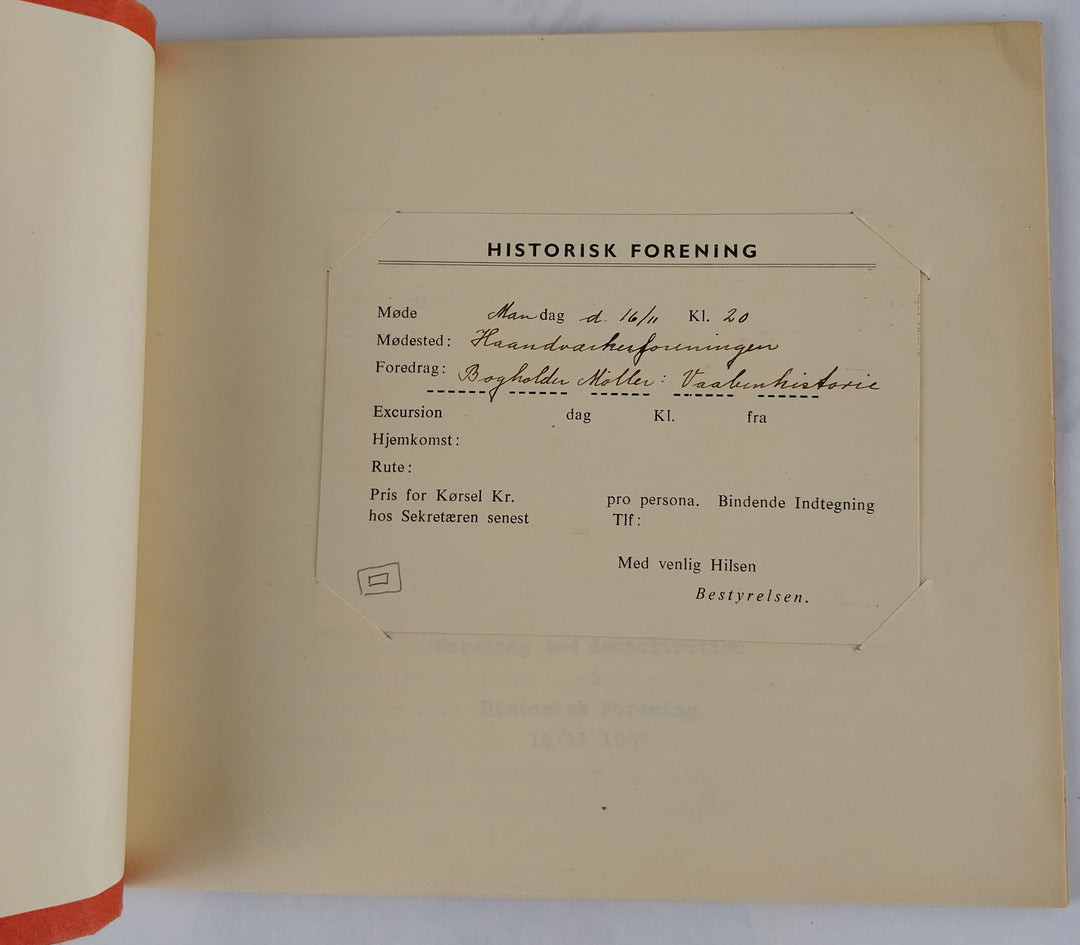 HISTORISK FORENING
Møde Mandag d. 16/11 Kl. 20
Mødested: Haandværkerforeningen
Foredrag: Bogholder Møller: Vaabenhistorie
Excursion dag Kl. fra
Hjemkomst:
Rute:
Pris for Kørsel Kr. pro persona. Bindende Indtegning
hos Sekretæren senest Tlf:
Med venlig Hilsen
Bestyrelsen.
Foredrag med demonstration
i
Historisk Forening
16/11 1953